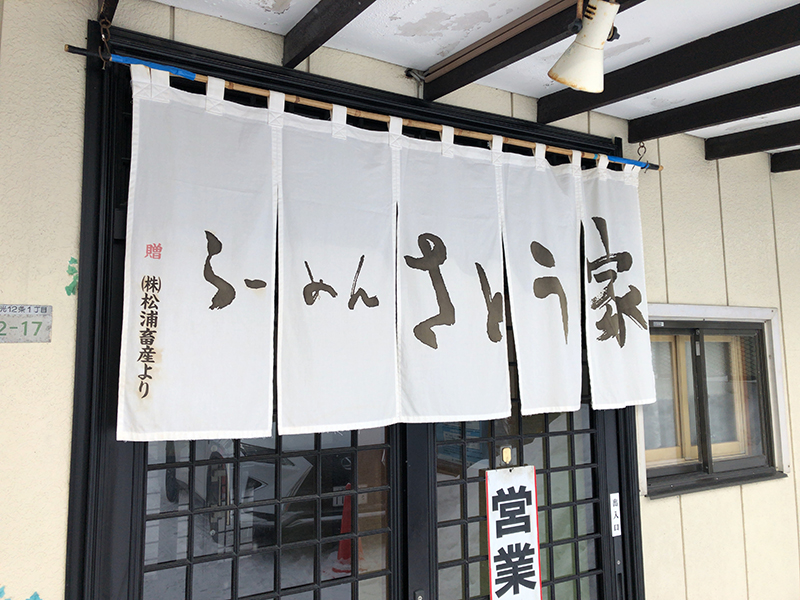 らーめん さとう家
贈
㈱松浦畜産より
光12条1丁目
2-17
営業
出入口